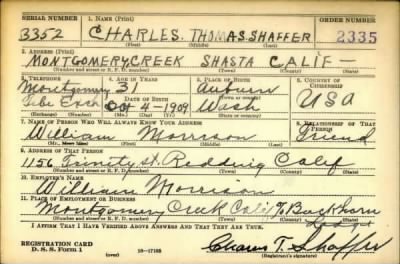 SERIAL NUMBER 1. NAME (Print) ORDER NUMBER
3352 CHARLES. THOMAS. SHAFFER 2335
(First) (Middle) (Last)
2. ADDRESS (Print)
MONTGOMERY CREEK SHASTA CALIF-
(Number and street or R. F. D. number) (Town) (County) (State)
3. TELEPHONE 4. AGE IN YEARS 5. PLACE OF BIRTH 6. COUNTRY OF CITIZENSHIP
Montgomery 31 Auburn
DATE OF BIRTH (Town or county) USA
Oct 4-1909 Wash
(Exchange) (Number) (Mo.) (Day) (Yr.) (State or country)
7. NAME OF PERSON WHO WILL ALWAYS KNOW YOUR ADDRESS 8. RELATIONSHIP OF THAT PERSON
William Morrison Friend
9. ADDRESS OF THAT PERSON
1156 Trinity St. Redding Calif
(Number and street or R. F. D. number) (Town) (County) (State)
10. EMPLOYER'S NAME
William Morrison
11. PLACE OF EMPLOYMENT OR BUSINESS
Montgomery Creek Calif
(Number and street or R. F. D. number) (Town) (County) (State)
I AFFIRM THAT I HAVE VERIFIED ABOVE ANSWERS AND THAT THEY ARE TRUE.
REGISTRATION CARD
D. S. S. Form 1 (over) 16-17105 Charles T. Shaffer
(Registrant's signature)